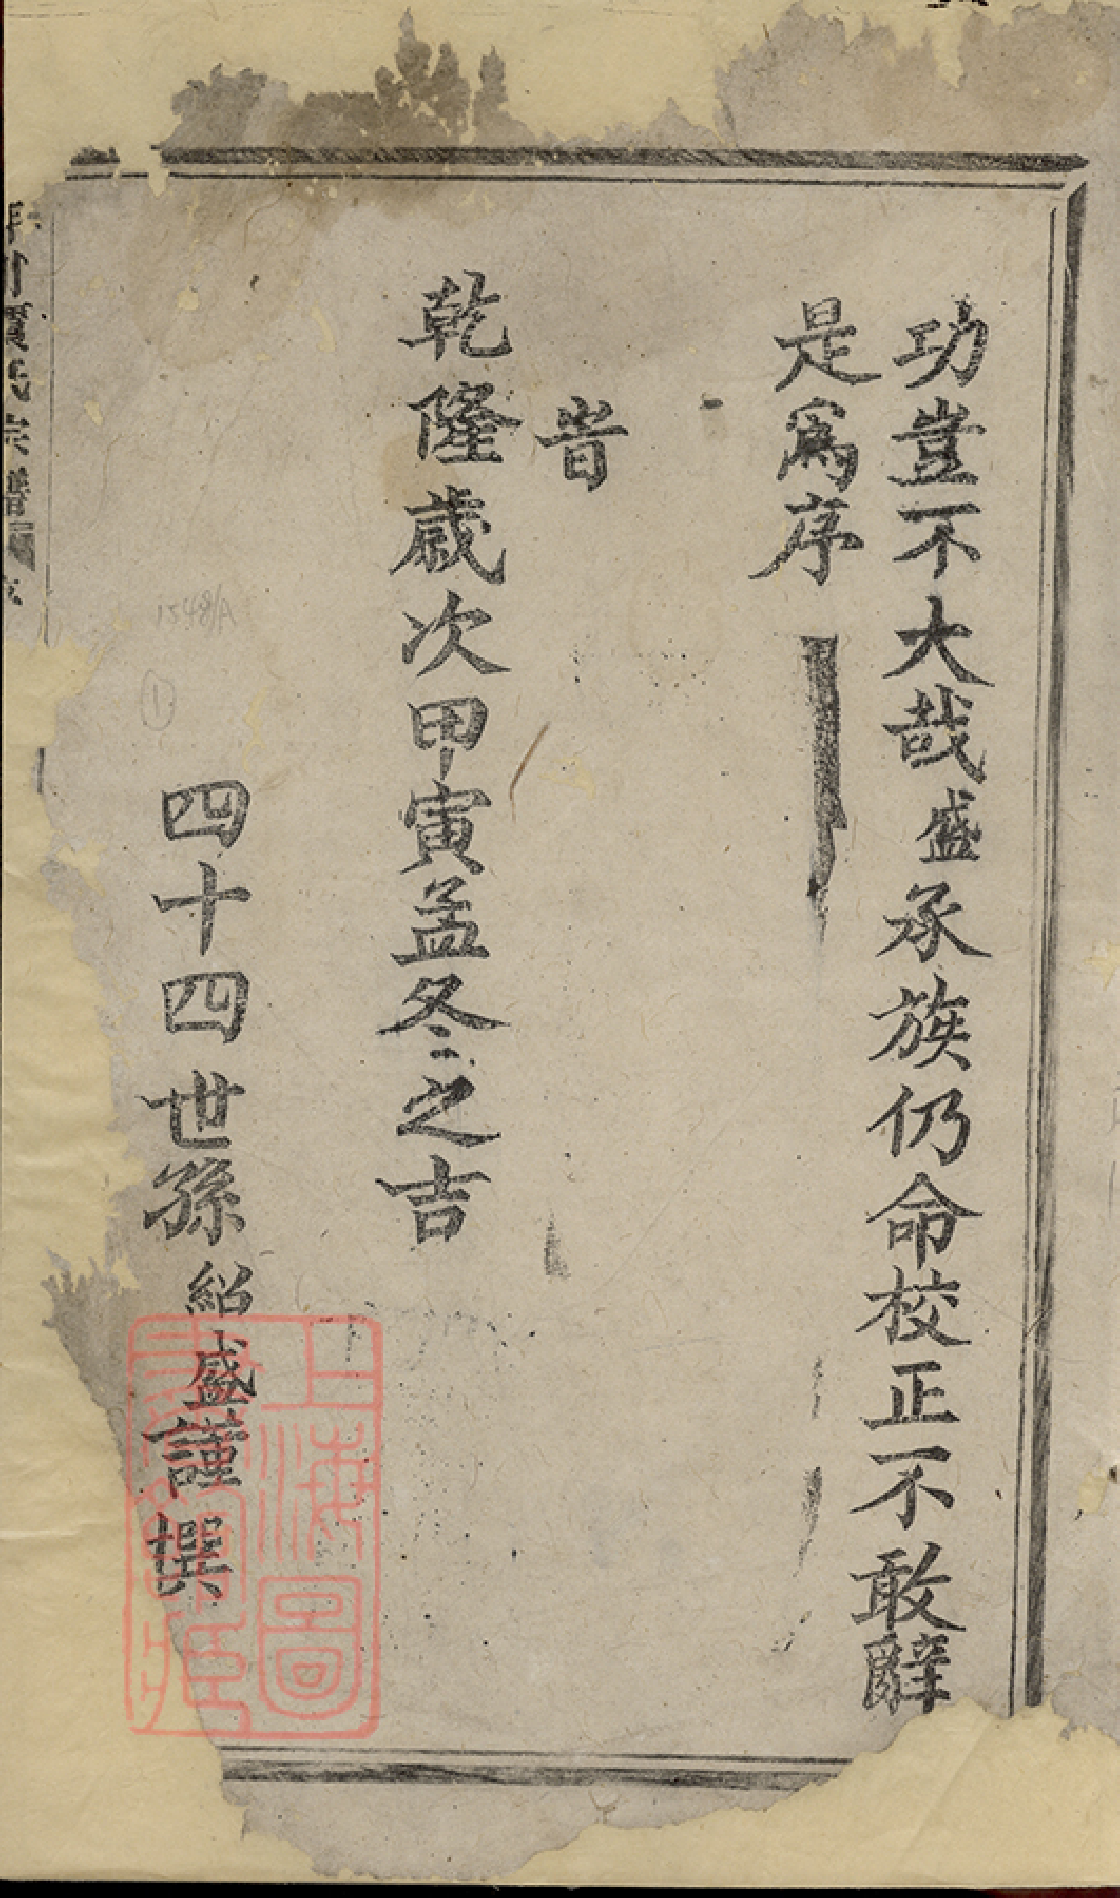 功豈不大哉盛承族仍命校正不敢辭
是爲序
旹
乾隆歲次甲寅孟冬之吉
四十四世孫紹盛謹撰
上海圖
書館藏
氏宗譜
1548/A
1